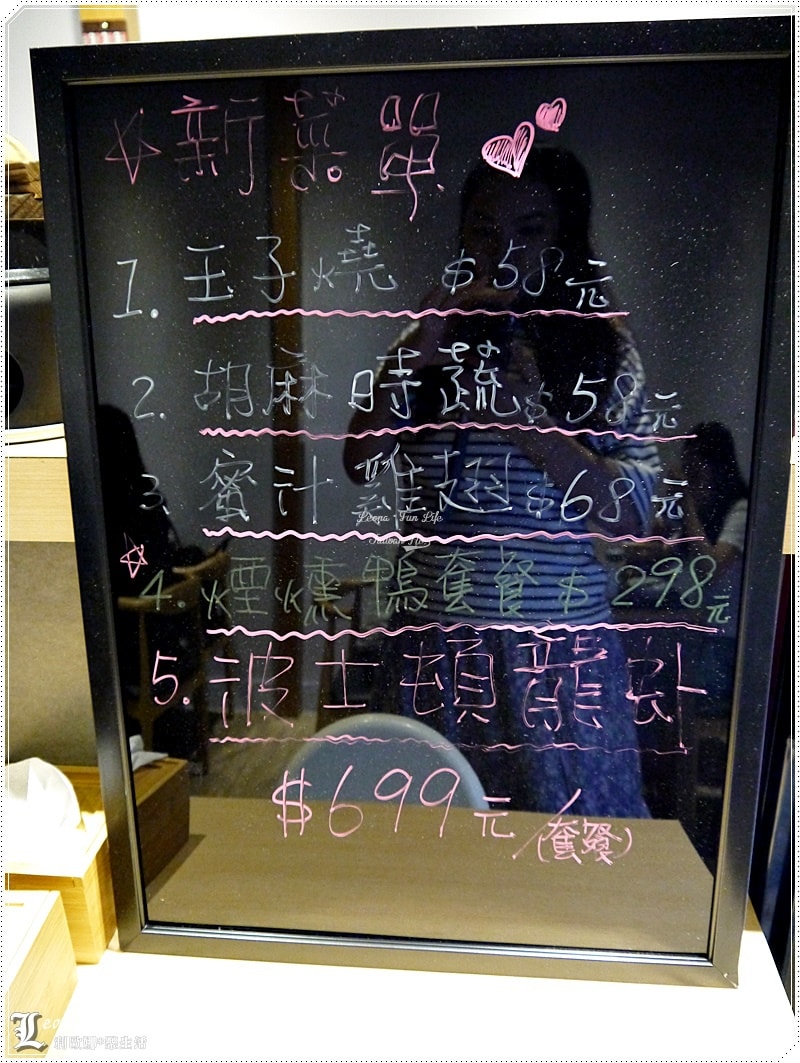 ☆新菜單
1. 玉子燒 $58元
2. 胡麻時蔬 $58元
3. 蜜汁雞翅 $68元
☆4. 煙燻鴨套餐 $298元
5. 波士頓龍虾
$699元 (套餐)
Leona Fun Life